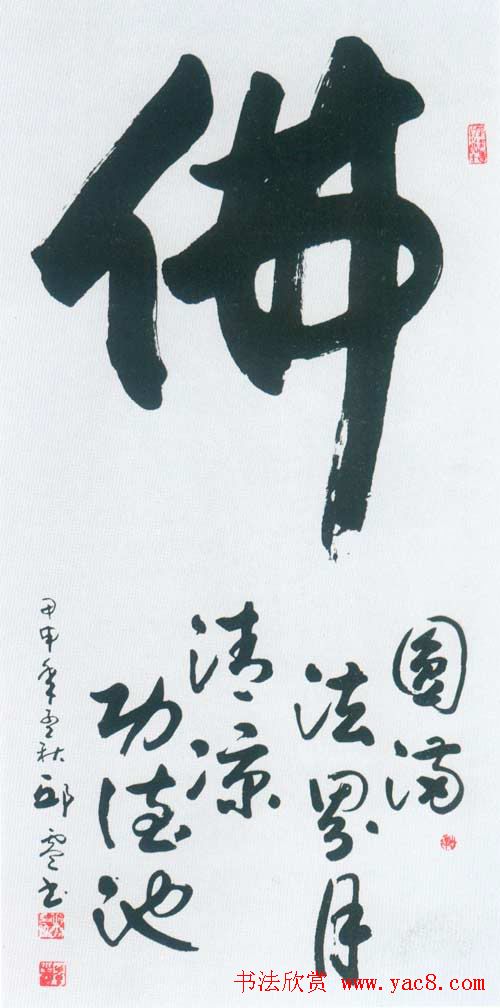 佛
圓滿
法界月
清凉
功德池
甲申年秋邱书
书法欣赏 www.yac8.com